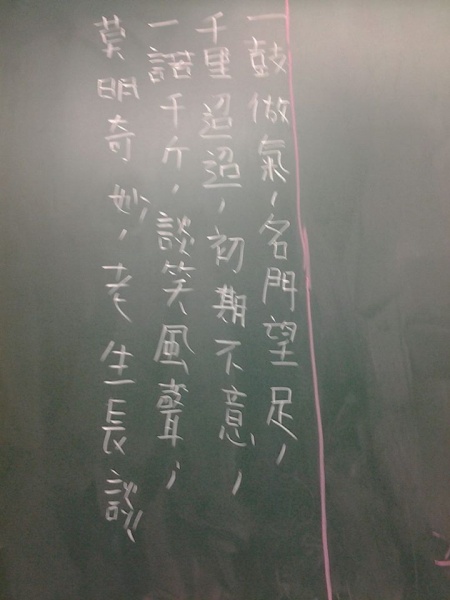 一鼓做氣,名門望足,
千里迢迢,初期不意,
一諾千斤,談笑風聲,
莫明奇妙,老生長談!!